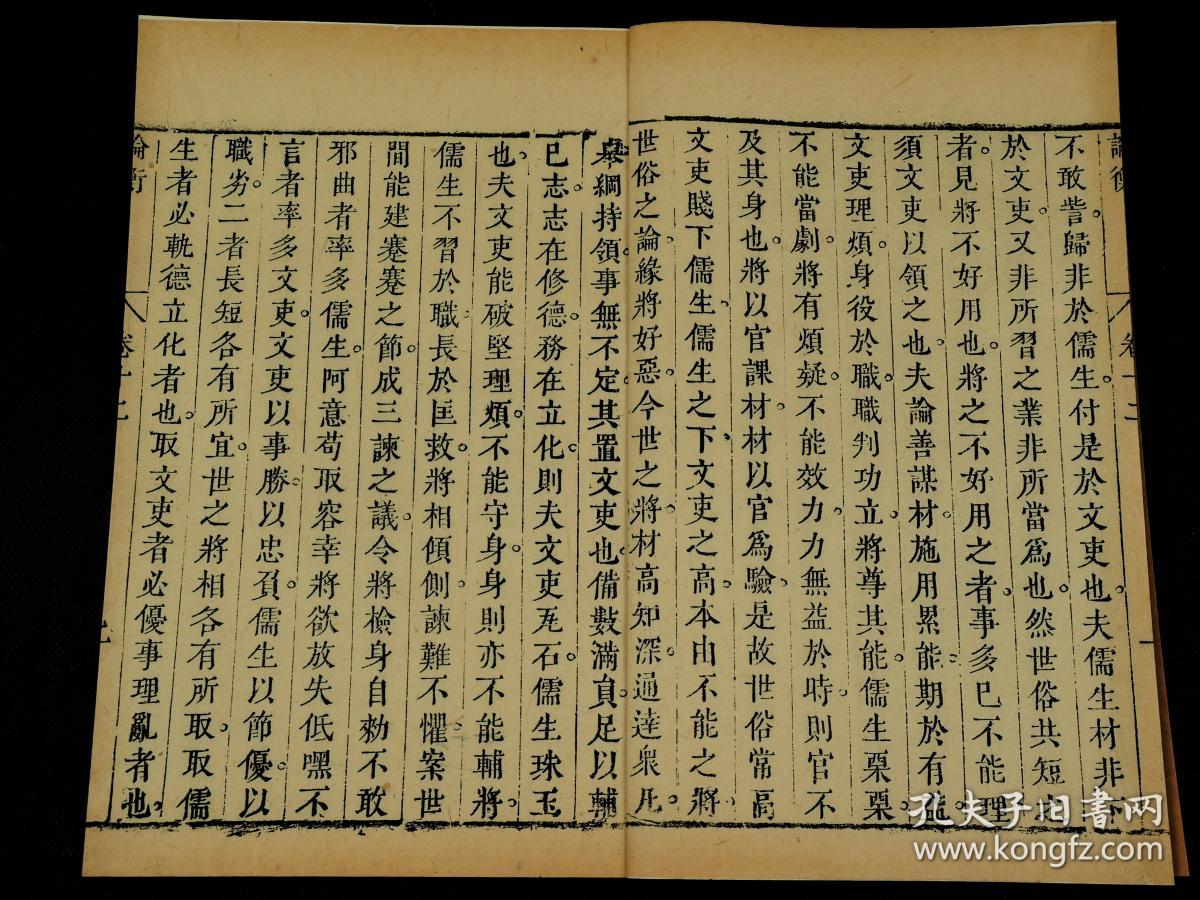 論衡 卷十二 一
不敢訾。歸非於儒生。付是於文吏也。夫儒生材非下
於文吏。又非所習之業。非所當爲也。然世俗共短之
者。見將不好用也。將之不好用之者。事多已不能理。
須文吏以領之也。夫論善謀材。施用累能。期於有益。
文吏理煩。身役於職。職判功立。將尊其能。儒生栗栗。
不能當劇。將有煩疑。不能效力。力無益於時。則官不
及其身也。將以官課材。材以官爲驗。是故世俗常高
文吏。賤下儒生。儒生之下。文吏之高。本由不能之將。
世俗之論。緣將好惡。今世之將。材高知深。通達衆凡。
舉綱持領。事無不定。其置文吏也。備數滿貟。足以輔
已志。志在修德。務在立化。則夫文吏瓦石。儒生珠玉
也。夫文吏能破堅理煩。不能守身。身則亦不能輔將。
儒生不習於職。長於匡救。將相傾側。諫難不懼。案世
間能建蹇蹇之節。成三諫之議。令將檢身自勑。不敢
邪曲者。率多儒生。阿意苟取容幸。將欲放失。低嘿不
言者。率多文吏。文吏以事勝。以忠負。儒生以節優。以
職劣。二者長短。各有所宜。世之將相。各有所取。取儒
生者。必軌德立化者也。取文吏者。必優事理亂者也。
論衡 卷十二
孔夫子旧书网
www.kongfz.com